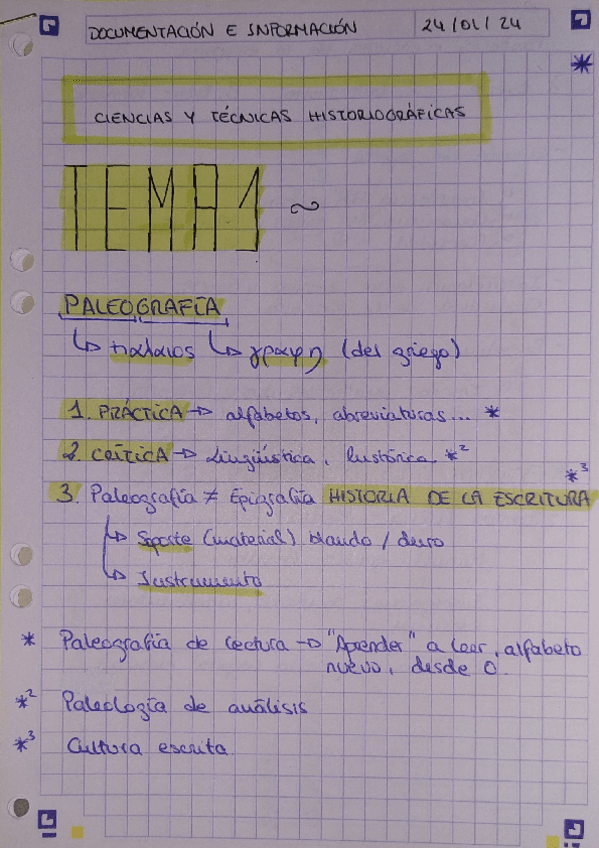 DOCUMENTACIÓN E INFORMACIÓN 24/01/24
*
CIENCIAS Y TÉCNICAS HISTORIOGRÁFICAS
TEMA 1 ~
PALEOGRAFÍA
↳ παλαιος ↳ γραφη (del griego)
1. PRÁCTICA → alfabetos, abreviaturas... *
2. CRÍTICA → Lingüística, histórica *²
*³
3. Paleografía ≠ Epigrafía HISTORIA DE LA ESCRITURA
↳ Soporte (material) blando / duro
↳ Instrumento
* Paleografía de lectura → "Aprender" a leer, alfabeto
nuevo, desde 0.
*² Paleología de análisis
*³ Cultura escrita